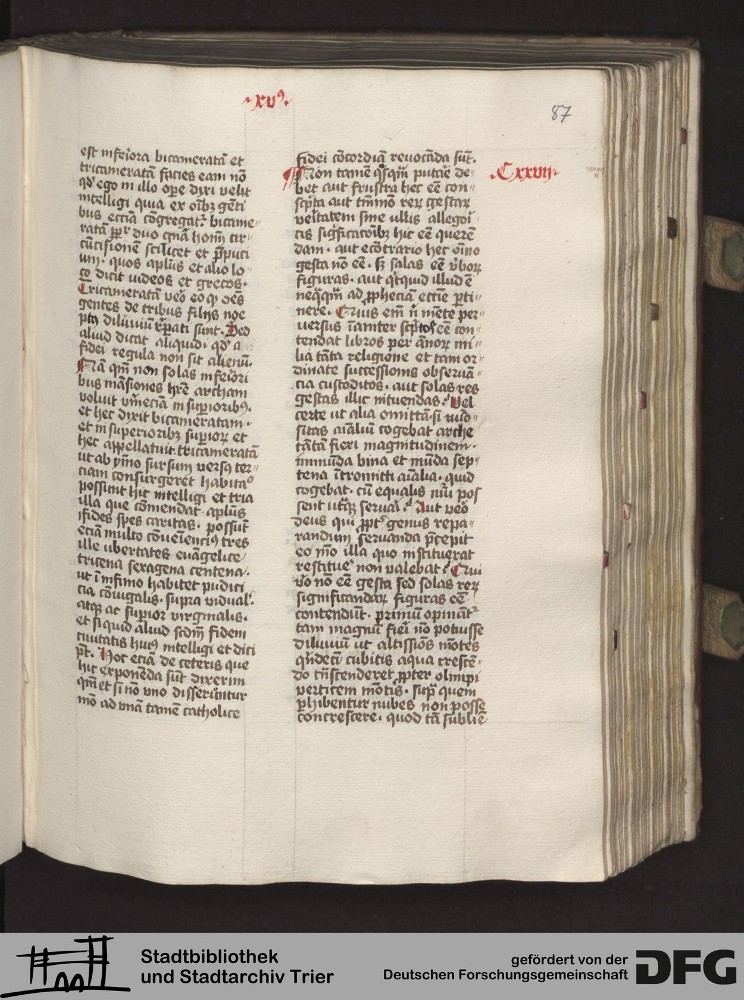 ·xv⁹·
87
est inferiora bicameratā et
tricameratā facies eam nō
qd̕ ego in illo oꝑe dixi velit
intelligi quia ex oīb₃ gēti
bus ecc̄ia cōgregat᷑ bicame
ratā ꝓpt̕ duo
cūcisionē scilicet et p̄puci
um· quos apl̄us et alio lo
co dicit iudeos et grecos·
Tricameratā ve᷑o eo ꝙ oēs
gentes de tribus filijs noe
post diluuiū sunt· Sed
aliud dicat aliquid· qd̕ a
fidei regula non sit alienū·
Nā qm̄ non solas inferiori
bus māsiones hr̄e archam
voluit v̄m eciā in suꝑiorib₃·
et hec dixit bicameratam·
et in suꝑiorib₃ suꝑiorꝝ et
hec appellatuit tricameratā
ut ab ymo sursum versꝰ ter
ciam consurgeret habitaᵒ
possunt hic intelligi et tria
illa que cōmendat apl̄us
fides spes caritas· possūt
eciā multo cōueiencꝰ tres
ille vbertates euāgelice
tricena sexagena centena·
ut ī infimo habitet pudici
cia cōiugalis· supra vidual᷑·
atqꝫ ac suꝑior virginalis·
et si quid aliud scd̄m fidem
ciuitatis huiꝰ intelligi et dici
pt̄· Hoc eciā de ceteris que
hic exponēda sūt dixerim
qm̄ et si nō vno disserūntur
mō ad vnā tamē catholice
fidei cōcordiā reuocāda sūt·
Non tamē qͥsqm̄ putaē de
bet aut frustra hec eē con
sc̄pta aut tm̄mō reꝝ gestaꝝ
veritatem sine vllis allegoi
cis sigͥficacōib₃ hic eē querē
dam· aut ecōtrario hec oīno
gesta nō eē· s₃ solas eē v̕boꝝ
figuras· aut qͥtquid illud ē
neqͣqm̄ ad ꝓpheciā ecc̄ie ꝑti
nere· Cuius em̄ n̄ mēte ꝑ
uersus īaniter sc̄ptos eē con
tendat libros per ānoꝝ mi
lia tāta religione et tam or
dinate successionis obseruā
cia custoditos· aut solas res
gestas illic intuendas· Vel
certe ut alia omittā si nūo
sitas aīaliū cogebat arche
tātā fieri magnitudinem·
inmūda bina et mūda sep
tena ītromitti aīalia· quid
cogebat· cū equalis nūi pos
sent vtͣqꝫ seruai· Aut ve᷑o
deus qui ꝓpt̕ genus repa
randum seruanda p̄cepit
eo mō illa quo instituerat
restitue᷑ non valebat· Qui
v̕o nō eē gesta sed solas reꝝ
significandaꝝ figuras eē
contendūt· primū opinant᷑
tam magnū fie᷑i nō potuisse
diluuiū ut altissiōs mōtes
qͥndecī cubitis aqua crescē
do tn̄scenderet ꝓpter olimpi
verticem mōtis· supᵃ quem
ꝑhibentur nubes non posse
concrescere· quod tā sublīē
·Cxxvij·
Stadtbibliothek
und Stadtarchiv Trier
gefördert von der
Deutschen Forschungsgemeinschaft
DFG